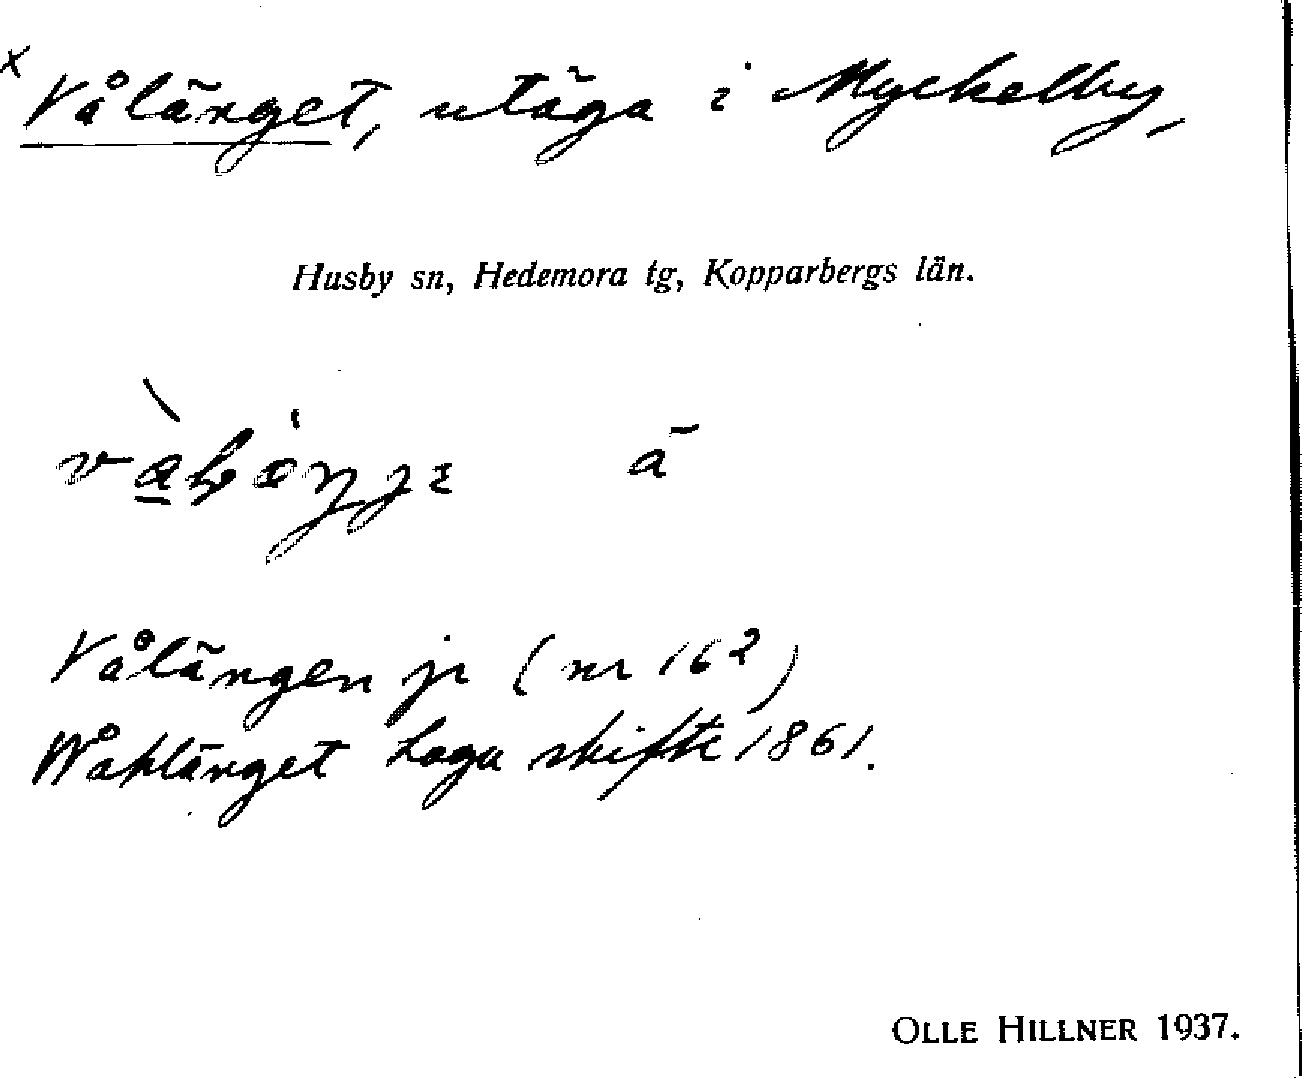 x
Vålänget, utäga i Myckelby,
Husby sn, Hedemora tg, Kopparbergs län.
ā
Vålängen jr (nr 16²)
Wåhlänget Laga skifte 1861.
OLLE HILLNER 1937.